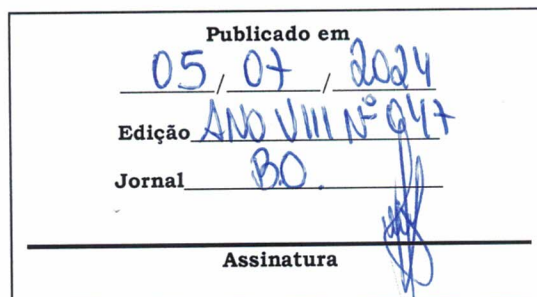 Publicado em
05/07/2024
Edição ANO VIII Nº 647
Jornal B.O.
Assinatura